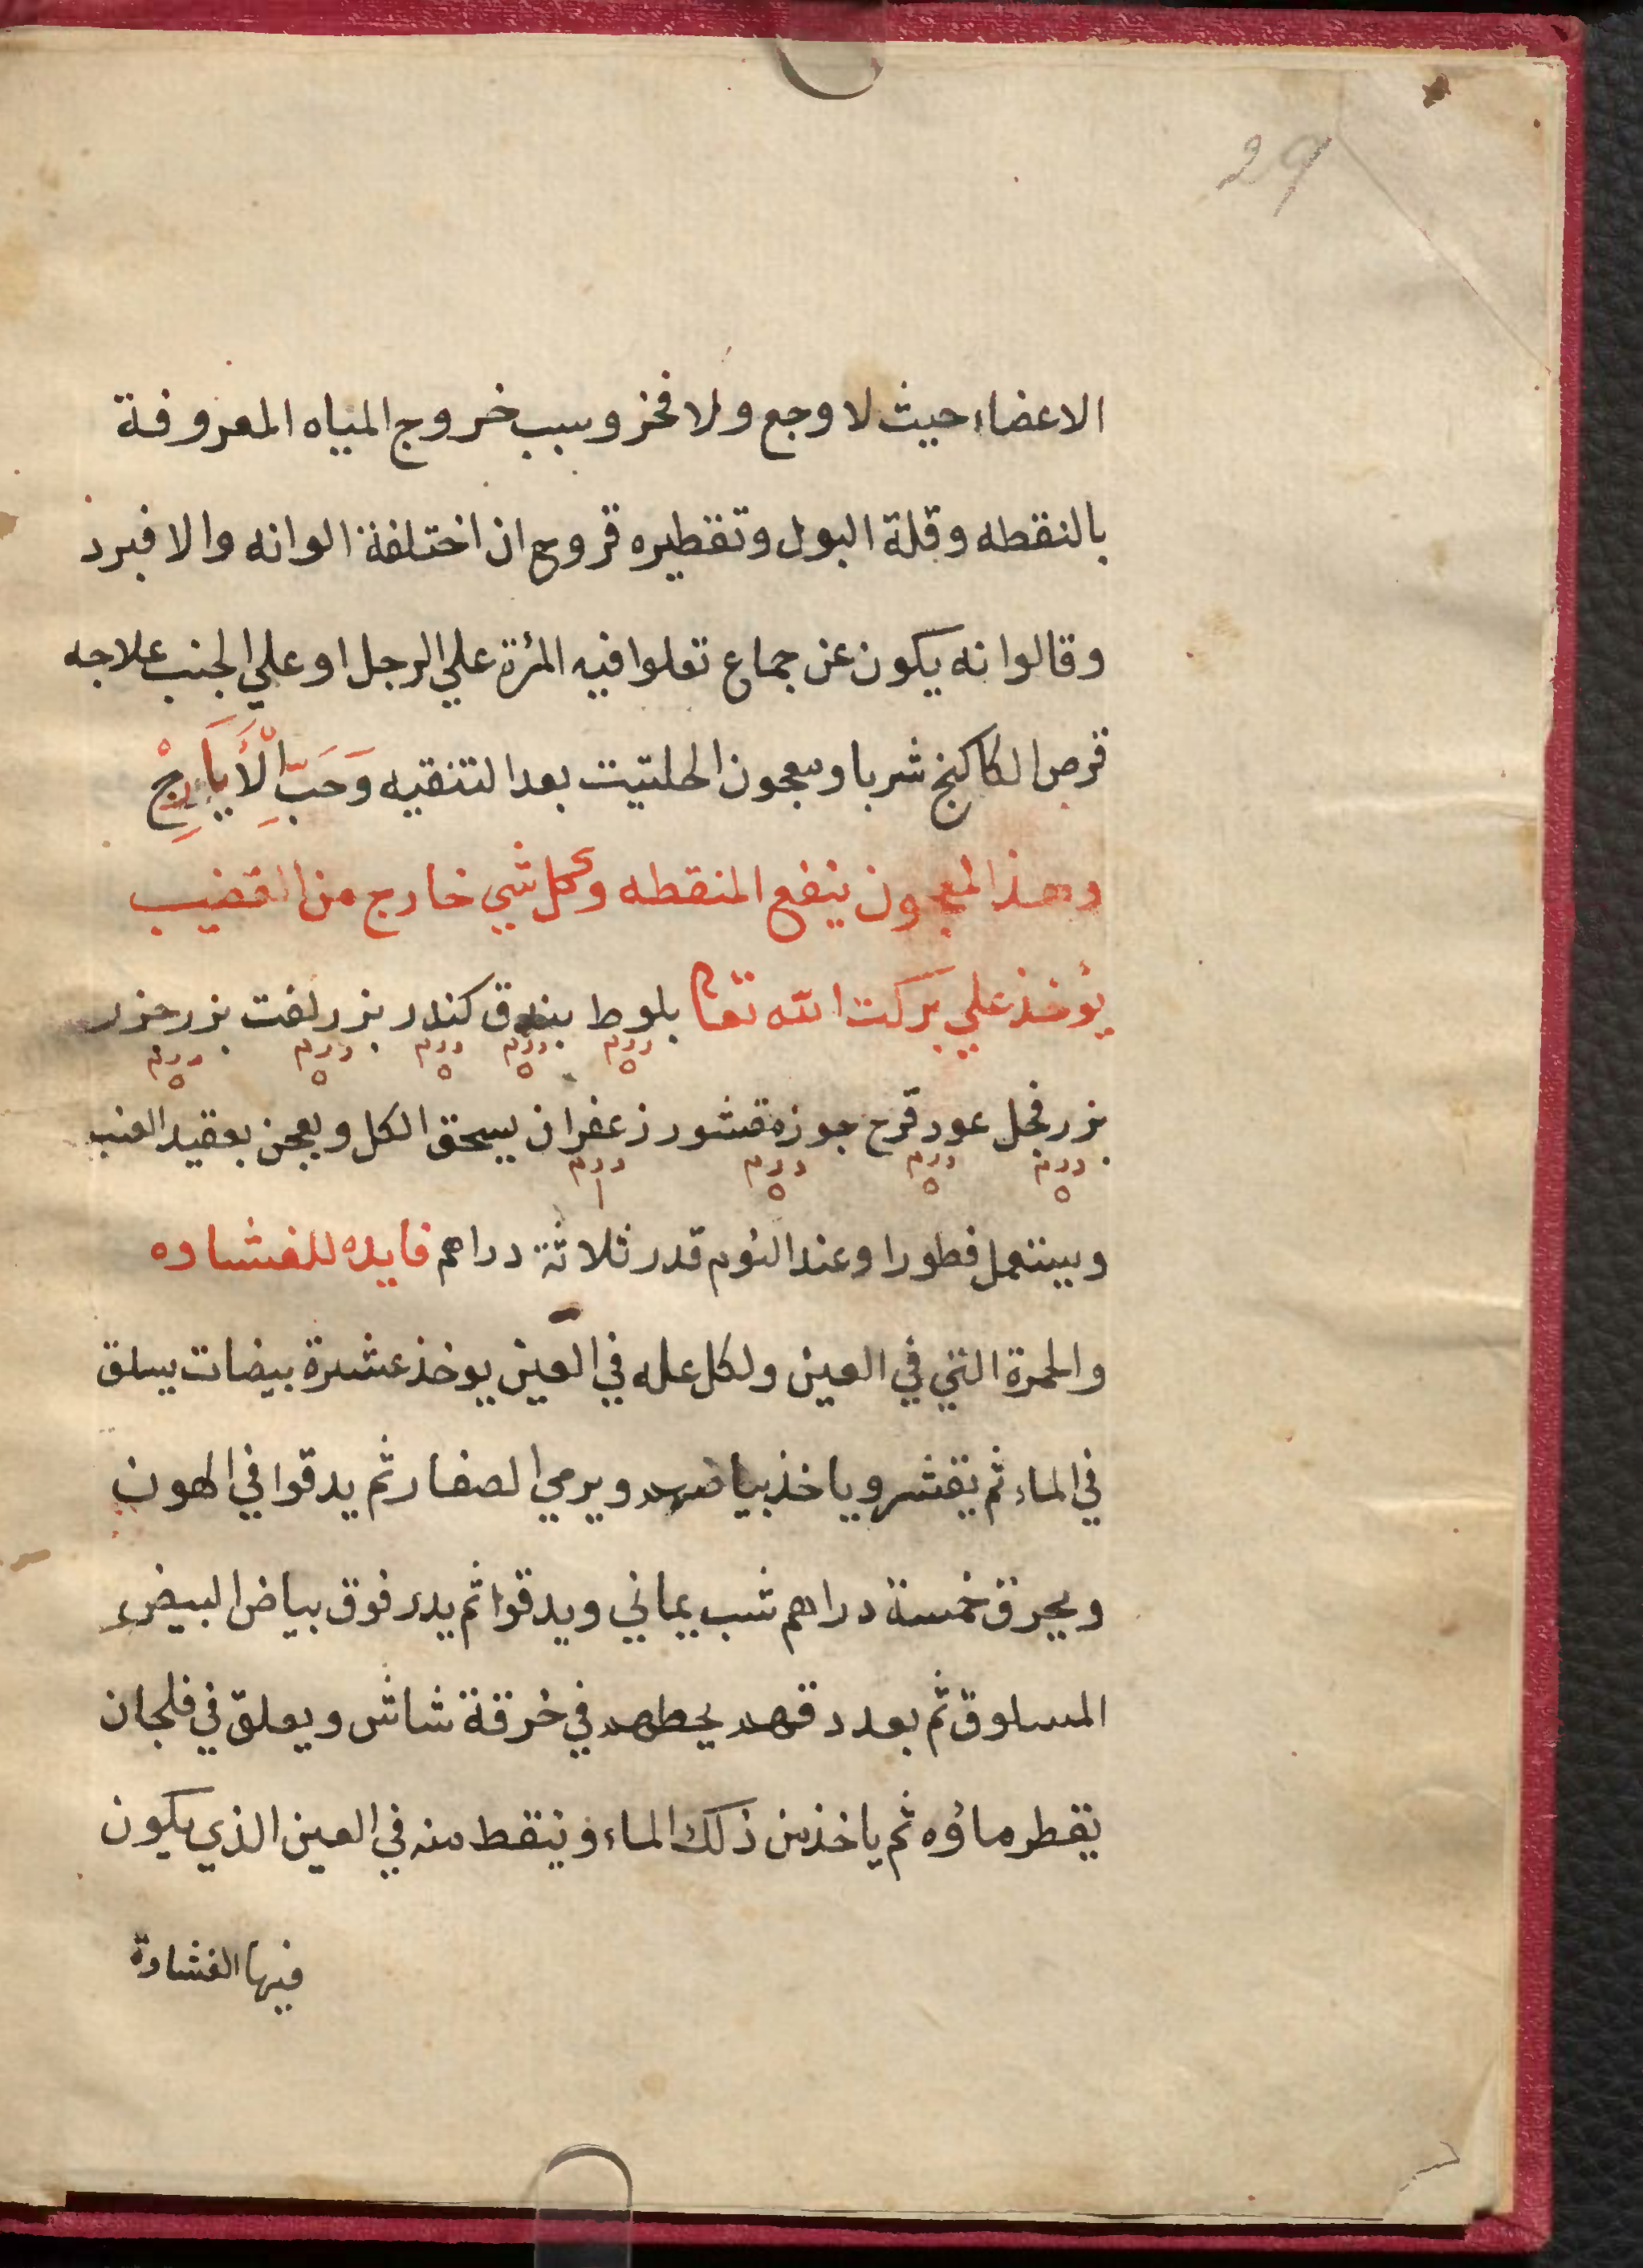 29
الاعضاء حيث لا وجع ولا فخز وسبب خروج المياه المعروفة
بالنقطه وقلة البول وتقطيره قروح ان اختلفة الوانه والا فبرد
وقالوا انه يكون عن جماع تعلوا فيه المرٔة علي الرجل او علي الجنب علاجه
قرص الكاكنج شربا ومعجون الحلتيت بعد التنقيه وَحَبِّ الْأَيَارِجْ
وهذا المعجون ينفع المنقطه وكل شي خارج من القضيب
يؤخذ علي بركت الله تعا بلوط بندق كندر بزر لفت بزر جزر
درم ٥ درم ٥ درم ٥ درم ٥ درم ٥
بزر فجل عود قرح جوز مقشور زعفران يسحق الكل ويعجن بعقيد العنب
درم ٥ درم ٥ درم ٥ درم ١
ويستعمل فطورا وعند النوم قدر ثلاثة دراهم فايده للغشاوه
والحمرة التي في العين ولكل عله في العين يوخذ عشرة بيضات يسلق
في الماء ثم يقشر وياخذ بياضهم ويرمي الصفار ثم يدقوا في الهون
ويحرق خمسة دراهم شب يماني ويدقوا ثم يدر فوق بياض البيض
المسلوق ثم بعد دقهم يحطهم في خرقة شاش ويعلق في فلجان
يقطر ماؤه ثم ياخذ من ذلك الماء وينقط منه في العين الذي يكون
فيها الغشاوة